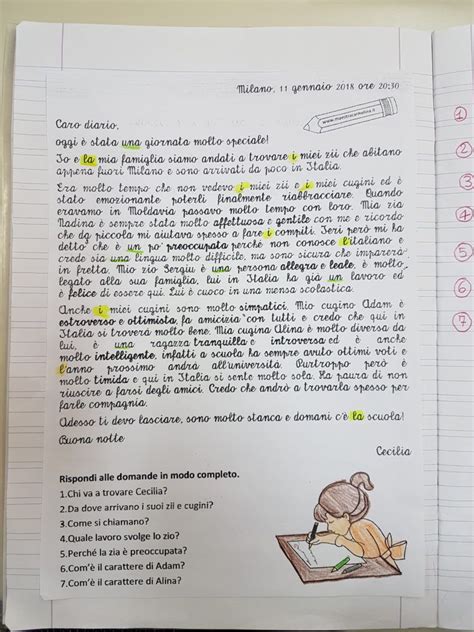 Milano, 11 gennaio 2018 ore 20:30
www.maestracarmelina.it
Caro diario,
oggi è stata una giornata molto speciale!
Io e la mia famiglia siamo andati a trovare i miei zii che abitano
appena fuori Milano e sono arrivati da poco in Italia.
Era molto tempo che non vedevo i miei zii e i miei cugini ed è
stato emozionante poterli finalmente riabbracciare. Quando
eravamo in Moldavia passavo molto tempo con loro. Mia zia
Nadina è sempre stata molto affettuosa e gentile con me e ricordo
che da piccola mi aiutava spesso a fare i compiti. Ieri però mi ha
detto che è un po' preoccupata perché non conosce l'italiano e
crede sia una lingua molto difficile, ma sono sicura che imparerà
in fretta. Mio zio Sergiu è una persona allegra e leale, è molto
legato alla sua famiglia, lui in Italia ha già un lavoro ed
è felice di essere qui. Lui è cuoco in una mensa scolastica.
Anche i miei cugini sono molto simpatici. Mio cugino Adam è
estroverso e ottimista, fa amicizia con tutti e credo che qui in
Italia si troverà molto bene. Mia cugina Alina è molto diversa da
lui, è una ragazza tranquilla e introversa ed è anche
molto intelligente, infatti a scuola ha sempre avuto ottimi voti e
l'anno prossimo andrà all'università. Purtroppo però è
molto timida e qui in Italia si sente molto sola. Ha paura di non
riuscire a farsi degli amici. Credo che andrò a trovarla spesso per
farle compagnia.
Adesso ti devo lasciare, sono molto stanca e domani c'è la scuola!
Buona notte
Cecilia
Rispondi alle domande in modo completo.
1.Chi va a trovare Cecilia?
2.Da dove arrivano i suoi zii e cugini?
3.Come si chiamano?
4.Quale lavoro svolge lo zio?
5.Perché la zia è preoccupata?
6.Com'è il carattere di Adam?
7.Com'è il carattere di Alina?
1
2
3
4
5
6
7